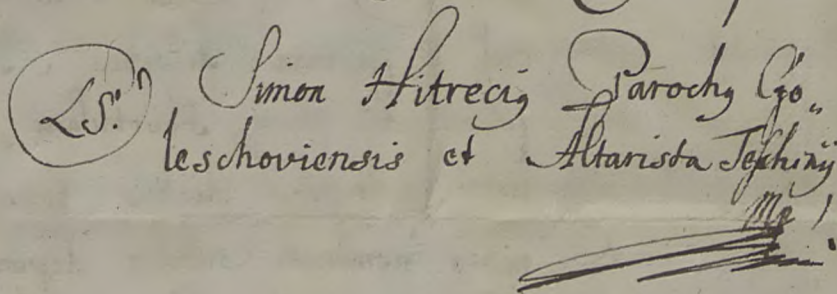 LS. Simon Hitreciꝰ Parochꝰ Go„
leschoviensis et Altarista Teschinij
Mp